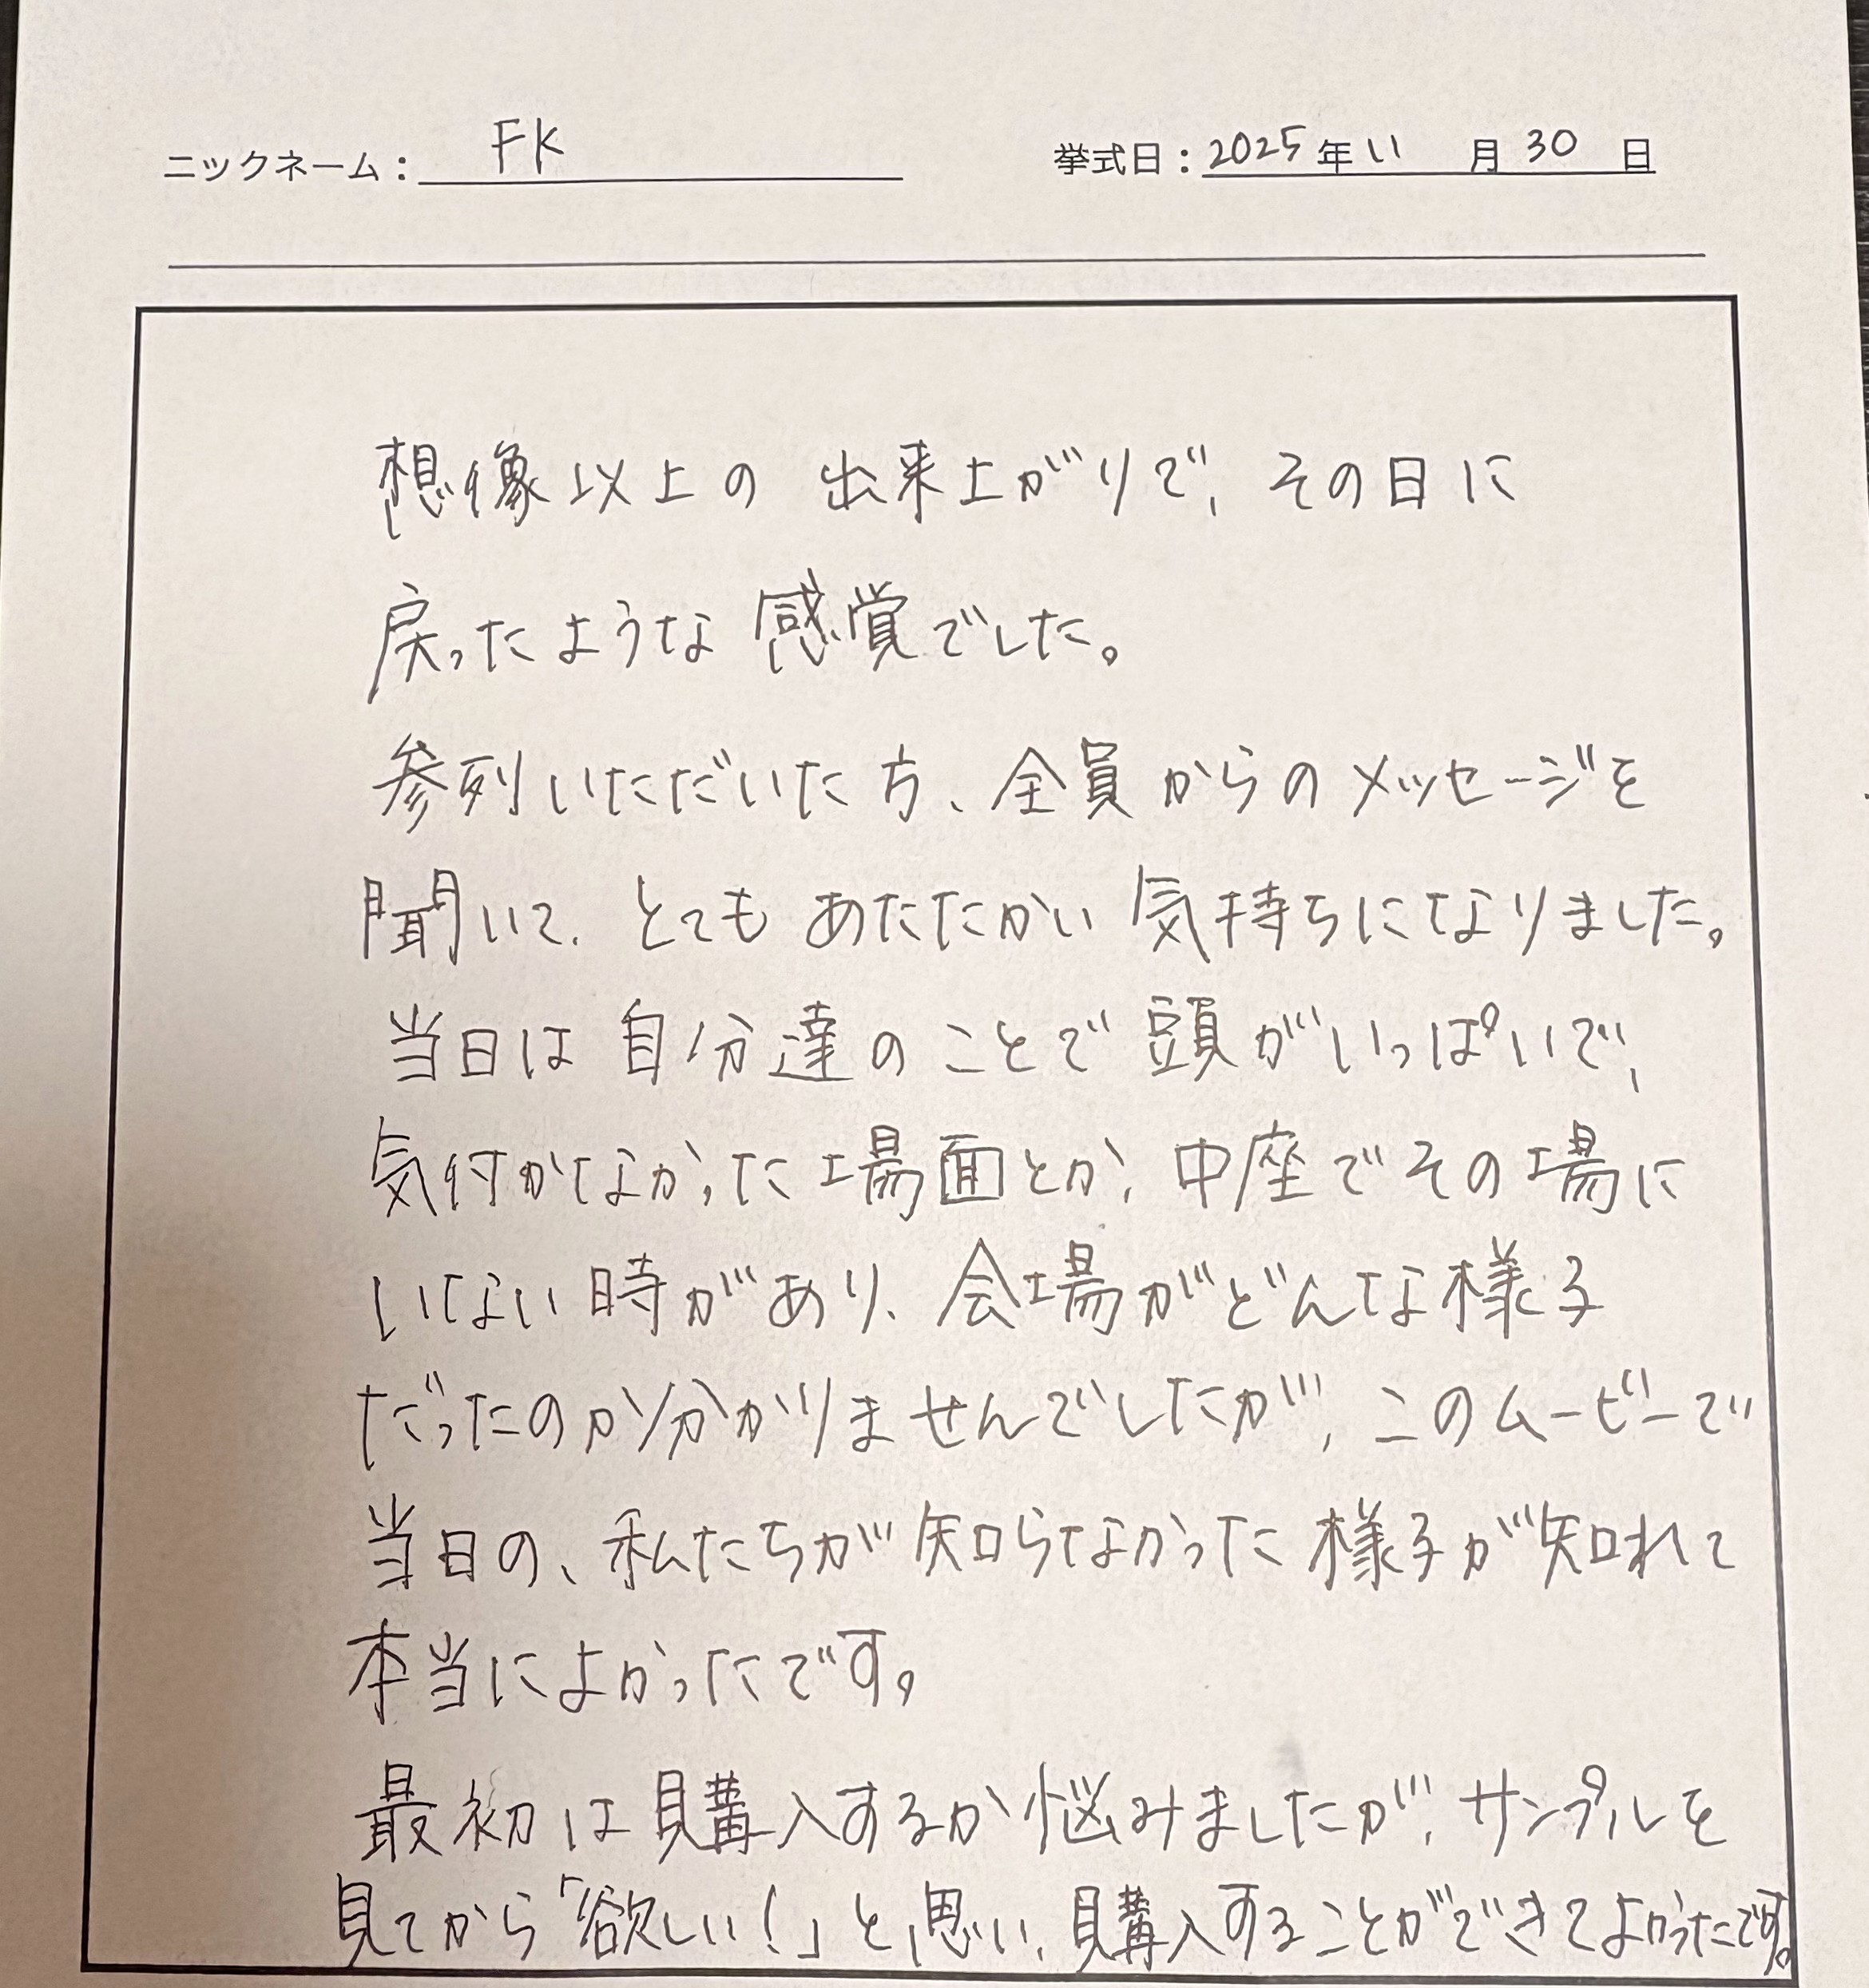 ニックネーム： FK 挙式日：2025年11月30日
想像以上の出来上がりで、その日に
戻ったような感覚でした。
参列いただいた方、全員からのメッセージを
聞いて、とてもあたたかい気持ちになりました。
当日は自分達のことで頭がいっぱいで、
気付かなかった場面とか、中座でその場に
いない時があり、会場がどんな様子
だったのか分かりませんでしたが、このムービーで
当日の、私たちが知らなかった様子が知れて
本当によかったです。
最初は購入するか悩みましたが、サンプルを
見てから「欲しい！」と思い、購入することができてよかったです。